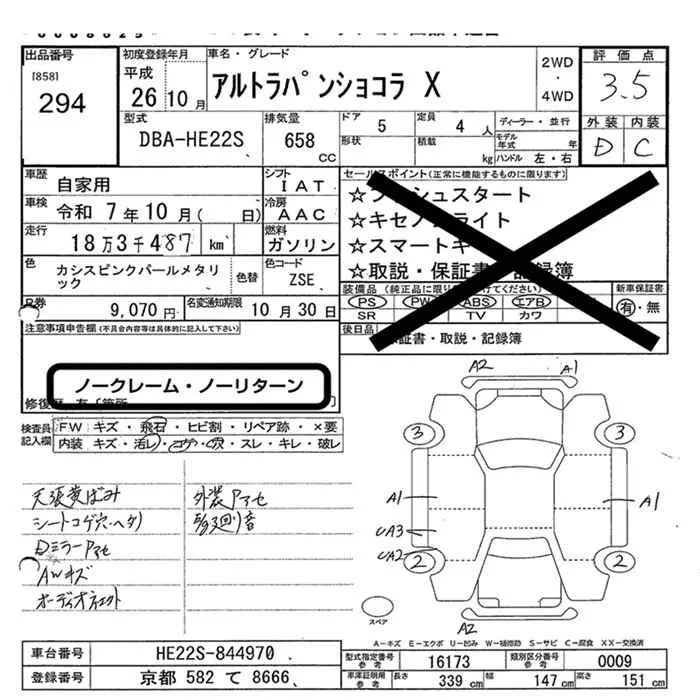 出品番号
[858]
294
初度登録年月
平成
26年10月
車名・グレード
アルトラパンショコラ X
2WD
・
4WD
評価点
3.5
外装 内装
D C
型式
DBA-HE22S
排気量
658
CC
ドア
5
形状
定員
4 人
積載
kg
ディーラー・並行
モデル
年式 年
ハンドル 左・右
車歴
自家用
シフト
IAT
車検
令和 7年10月 ( 日)
冷房
AAC
走行
18万3千487 km
燃料
ガソリン
色
カシスピンクパールメタリ
ック
色替
色コード
ZSE
9,070円
名変通知期限
10月30日
セールスポイント(正常に機能するものに限ります)
☆プッシュスタート
☆キセノンライト
☆スマートキー
☆取説・保証書・記録簿
装備品 (純正品に限り
PS PW ABS エアB
SR TV カワ
新車保証書
有・無
後日品
保証書・取説・記録簿
注意事項申告欄 (不具合内容等は具体的に記入して下さい)
ノークレーム・ノーリターン
検査員
記入欄
FW キズ・飛石・ヒビ割・リペア跡・×要
内装 キズ・汚レ・コゲ・穴・スレ・キレ・破レ
天張黄ばみ
シートコゲ穴・ヘタリ
DミラーアセA
AWキズ
外装アセ
A2 A1
3 3
A1 A1
UA3
UA2
2 2
A2
スペア
A−キズ E−エクボ U−凹み W−補修跡 S−サビ C−腐食 XX−交換済
車台番号
HE22S-844970
登録番号
京都 582 て 8666
型式指定番号
参考
16173
類別区分番号
参考
0009
車庫証明用
参考
長さ
339 cm
幅
147 cm
高さ
151 cm